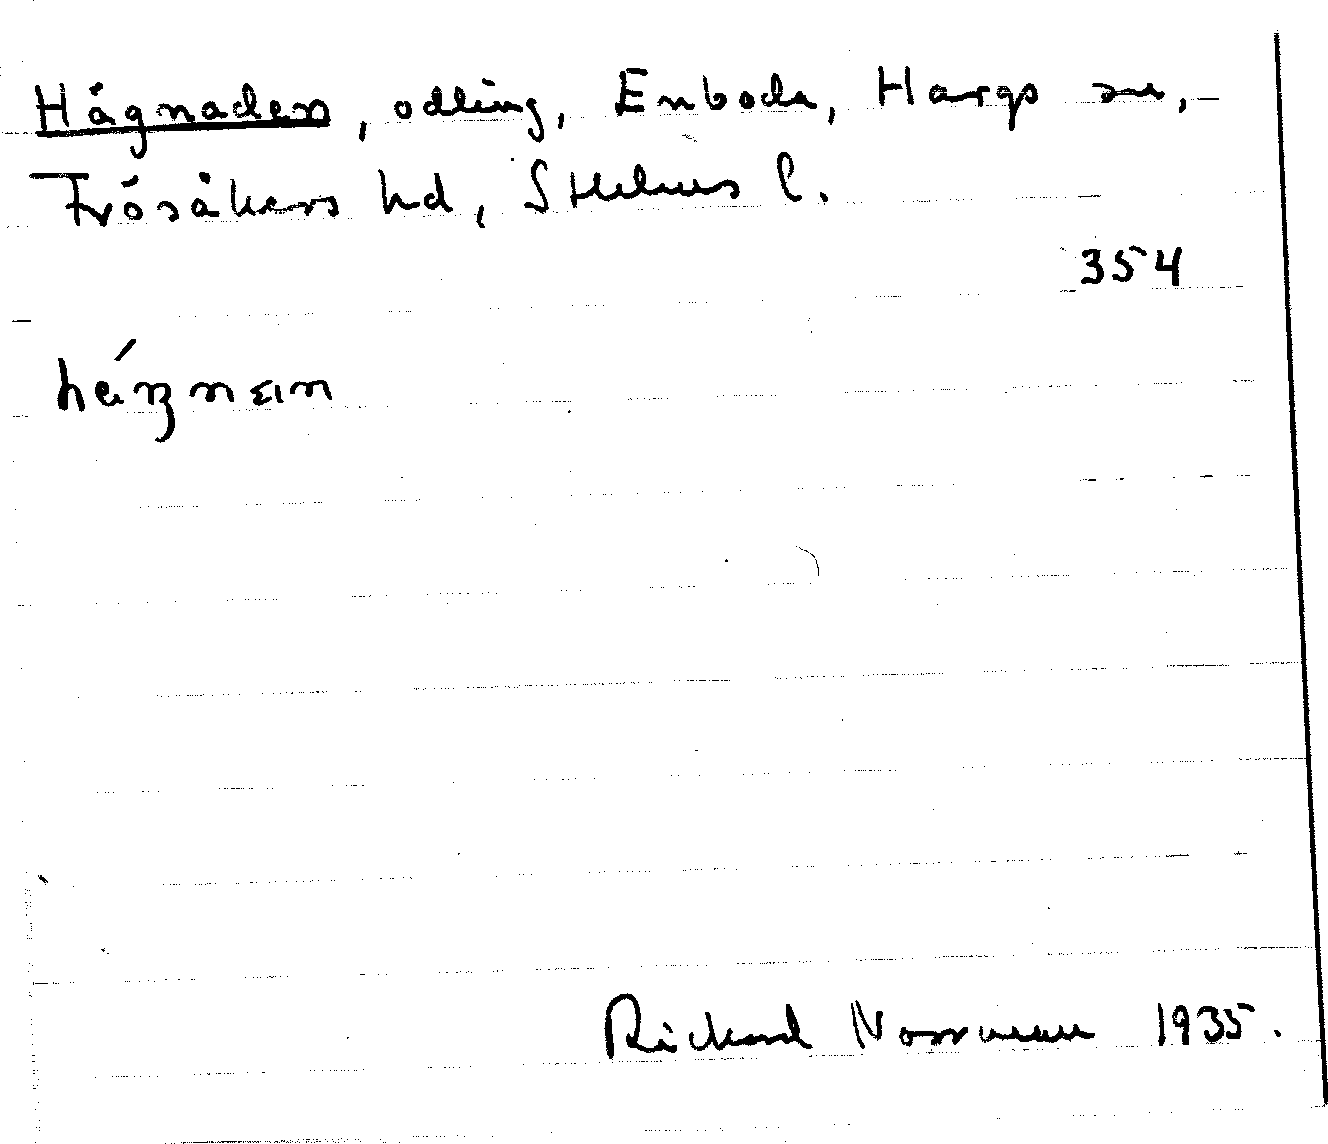 Hägnaden, odling, Enboda, Hargs sn,
Frösåkers hd, Sthlms l.
354
Rickard Norrman 1935.